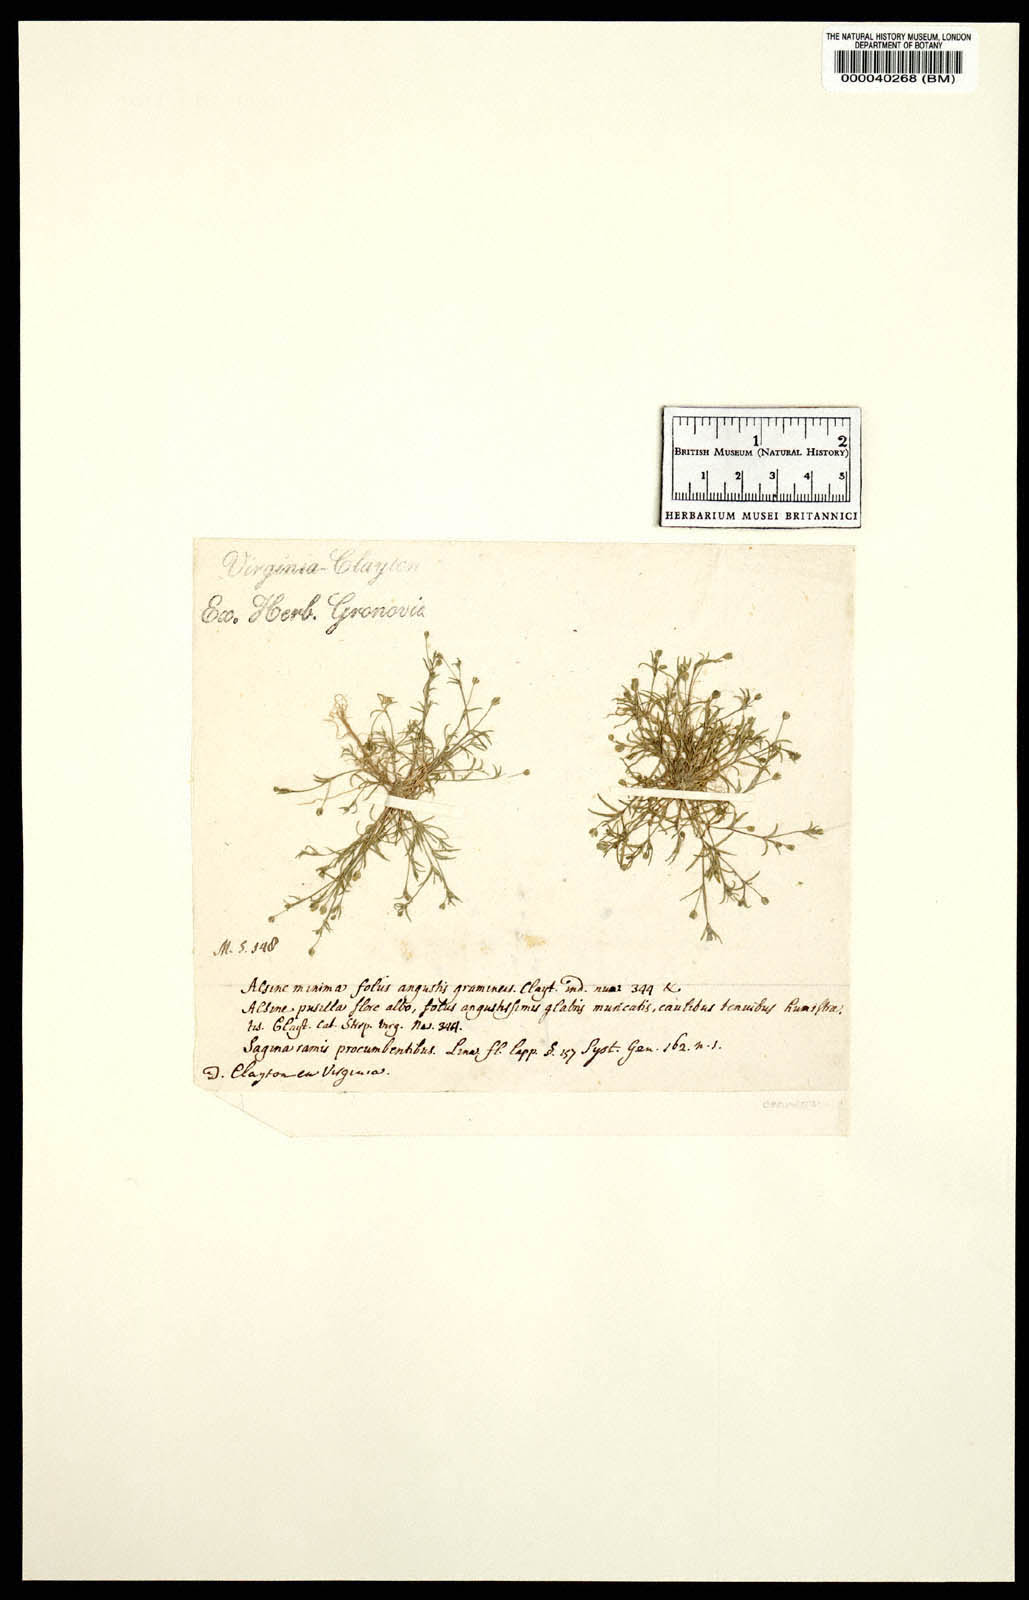 THE NATURAL HISTORY MUSEUM, LONDON
DEPARTMENT OF BOTANY
000040268 (BM)
1 2
BRITISH MUSEUM (NATURAL HISTORY)
1 2 3 4 5
HERBARIUM MUSEI BRITANNICI
Virginia-Clayton
Ex. Herb. Gronovii
M. S. 148
Alsine minima foliis angustis gramineis. Clayt. ind. num: 344 &
Alsine pusilla flore albo, foliis angustissimis glabris muricatis, caulibus tenuibus humistra:
tis. Clayt. Cat. Stirp. Virg. No. 344.
Sagina ramis procumbentibus. Linn. fl. lapp. §. 157 Syst. Gen. 162. n. 1.
D. Clayton eu Virginia.